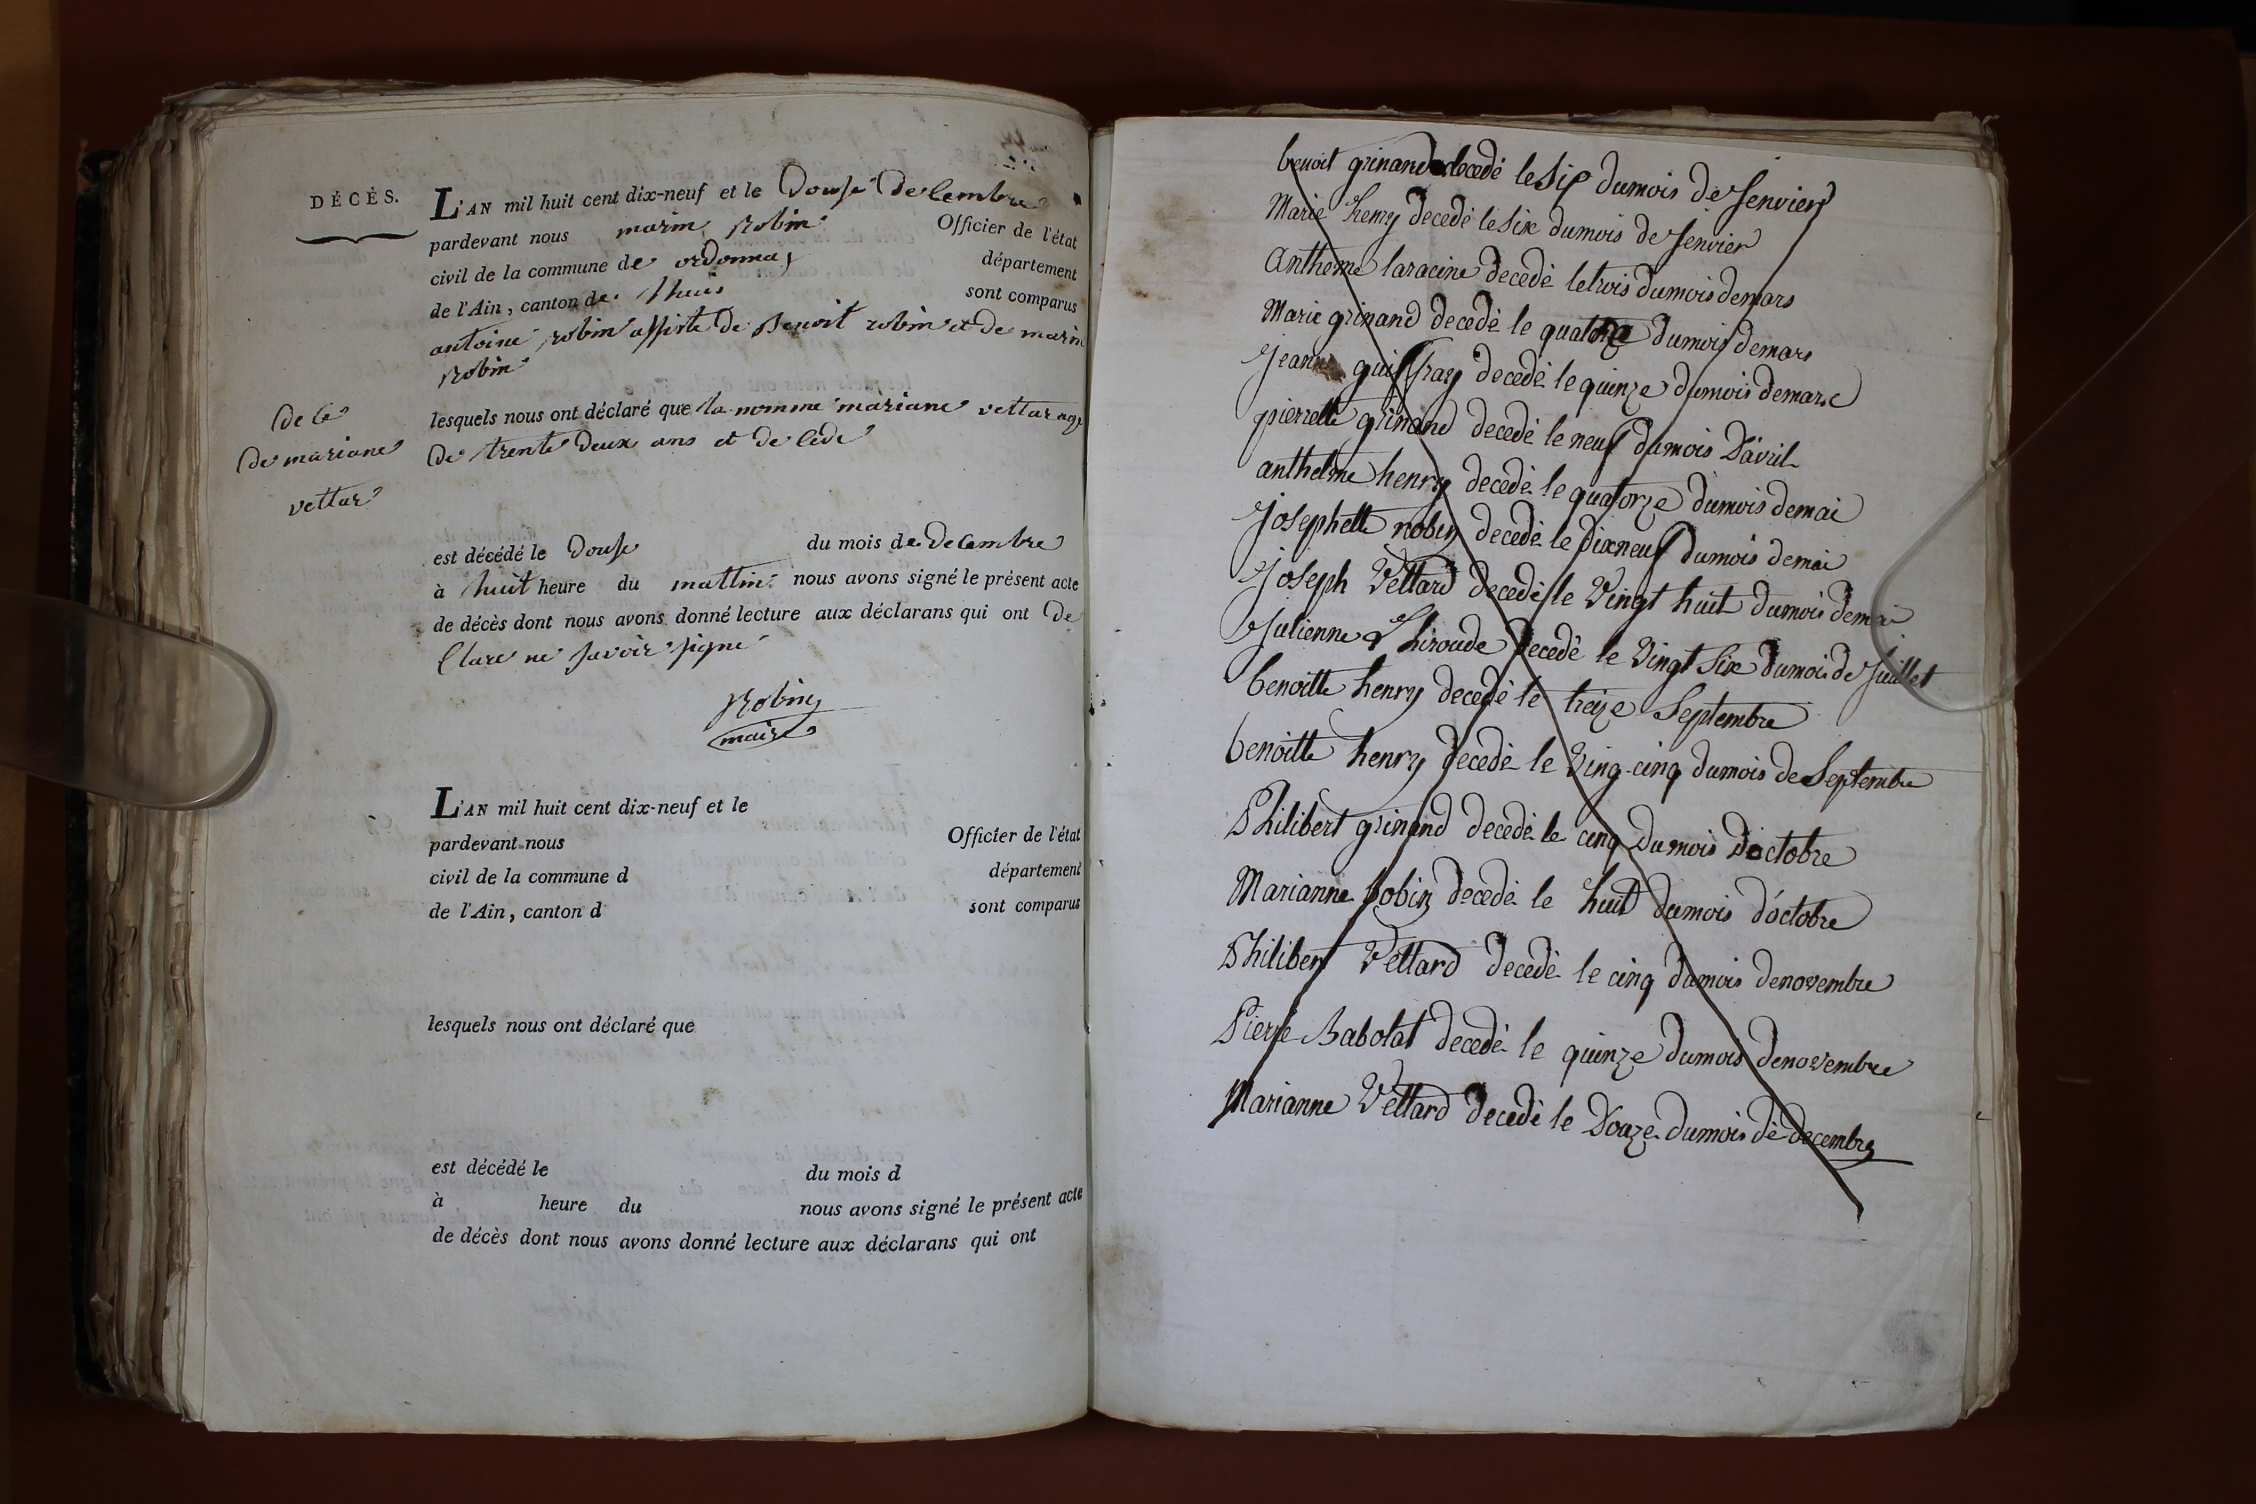 DÉCÈS.
L'AN mil huit cent dix-neuf et le Douse de Cembre
pardevant nous marin Robin Officier de l'état
civil de la commune de ordonnas département
de l'Ain, canton de lhuis sont comparus
antoine robin assiste de Benoit robin et de marin
Robin
de Ce
de mariane
vettar
lesquels nous ont déclaré que la nomme mariane vettar age
de trente deux ans et de Cede
est décédé le Douse du mois de De Cembre
à huit heure du mattin nous avons signé le présent acte
de décès dont nous avons donné lecture aux déclarans qui ont De
Clare ne savoir signe
Robin
maire
L'AN mil huit cent dix-neuf et le
pardevant nous Officier de l'état
civil de la commune d département
de l'Ain, canton d sont comparus
lesquels nous ont déclaré que
est décédé le du mois d
à heure du nous avons signé le présent acte
de décès dont nous avons donné lecture aux déclarans qui ont
benoit grinand decedé le Six dumois de Jenvier
Marie henry decedé le Six dumois de Jenvier
Anthelme laracine decedé le trois dumois demars
Marie grinand decedé le quatorze dumois demars
Jeanne guiffray decedé le quinze dumois demars
pierrette grinand decedé le neuf dumois D'avril
anthelme henry decedé le quatorze dumois demai
Josephette robin decedé le Dixneuf dumois demai
Joseph Vettard decedé le Vingt huit dumois demai
Julienne Thiroude decedé le Vingt Six dumois de Juillet
benoitte henry decedé le treize Septembre
benoitte henry decedé le Ving-cinq dumois de Septembre
Philibert grinand decedé le cinq Dumois Doctobre
Marianne Robin decedé le huit dumois d'octobre
Philibert Vettard decedé le cinq dumois denovembre
Pierre Babolat decedé le quinze dumois denovembre
Marianne Vettard decedé le Douze dumois de decembre